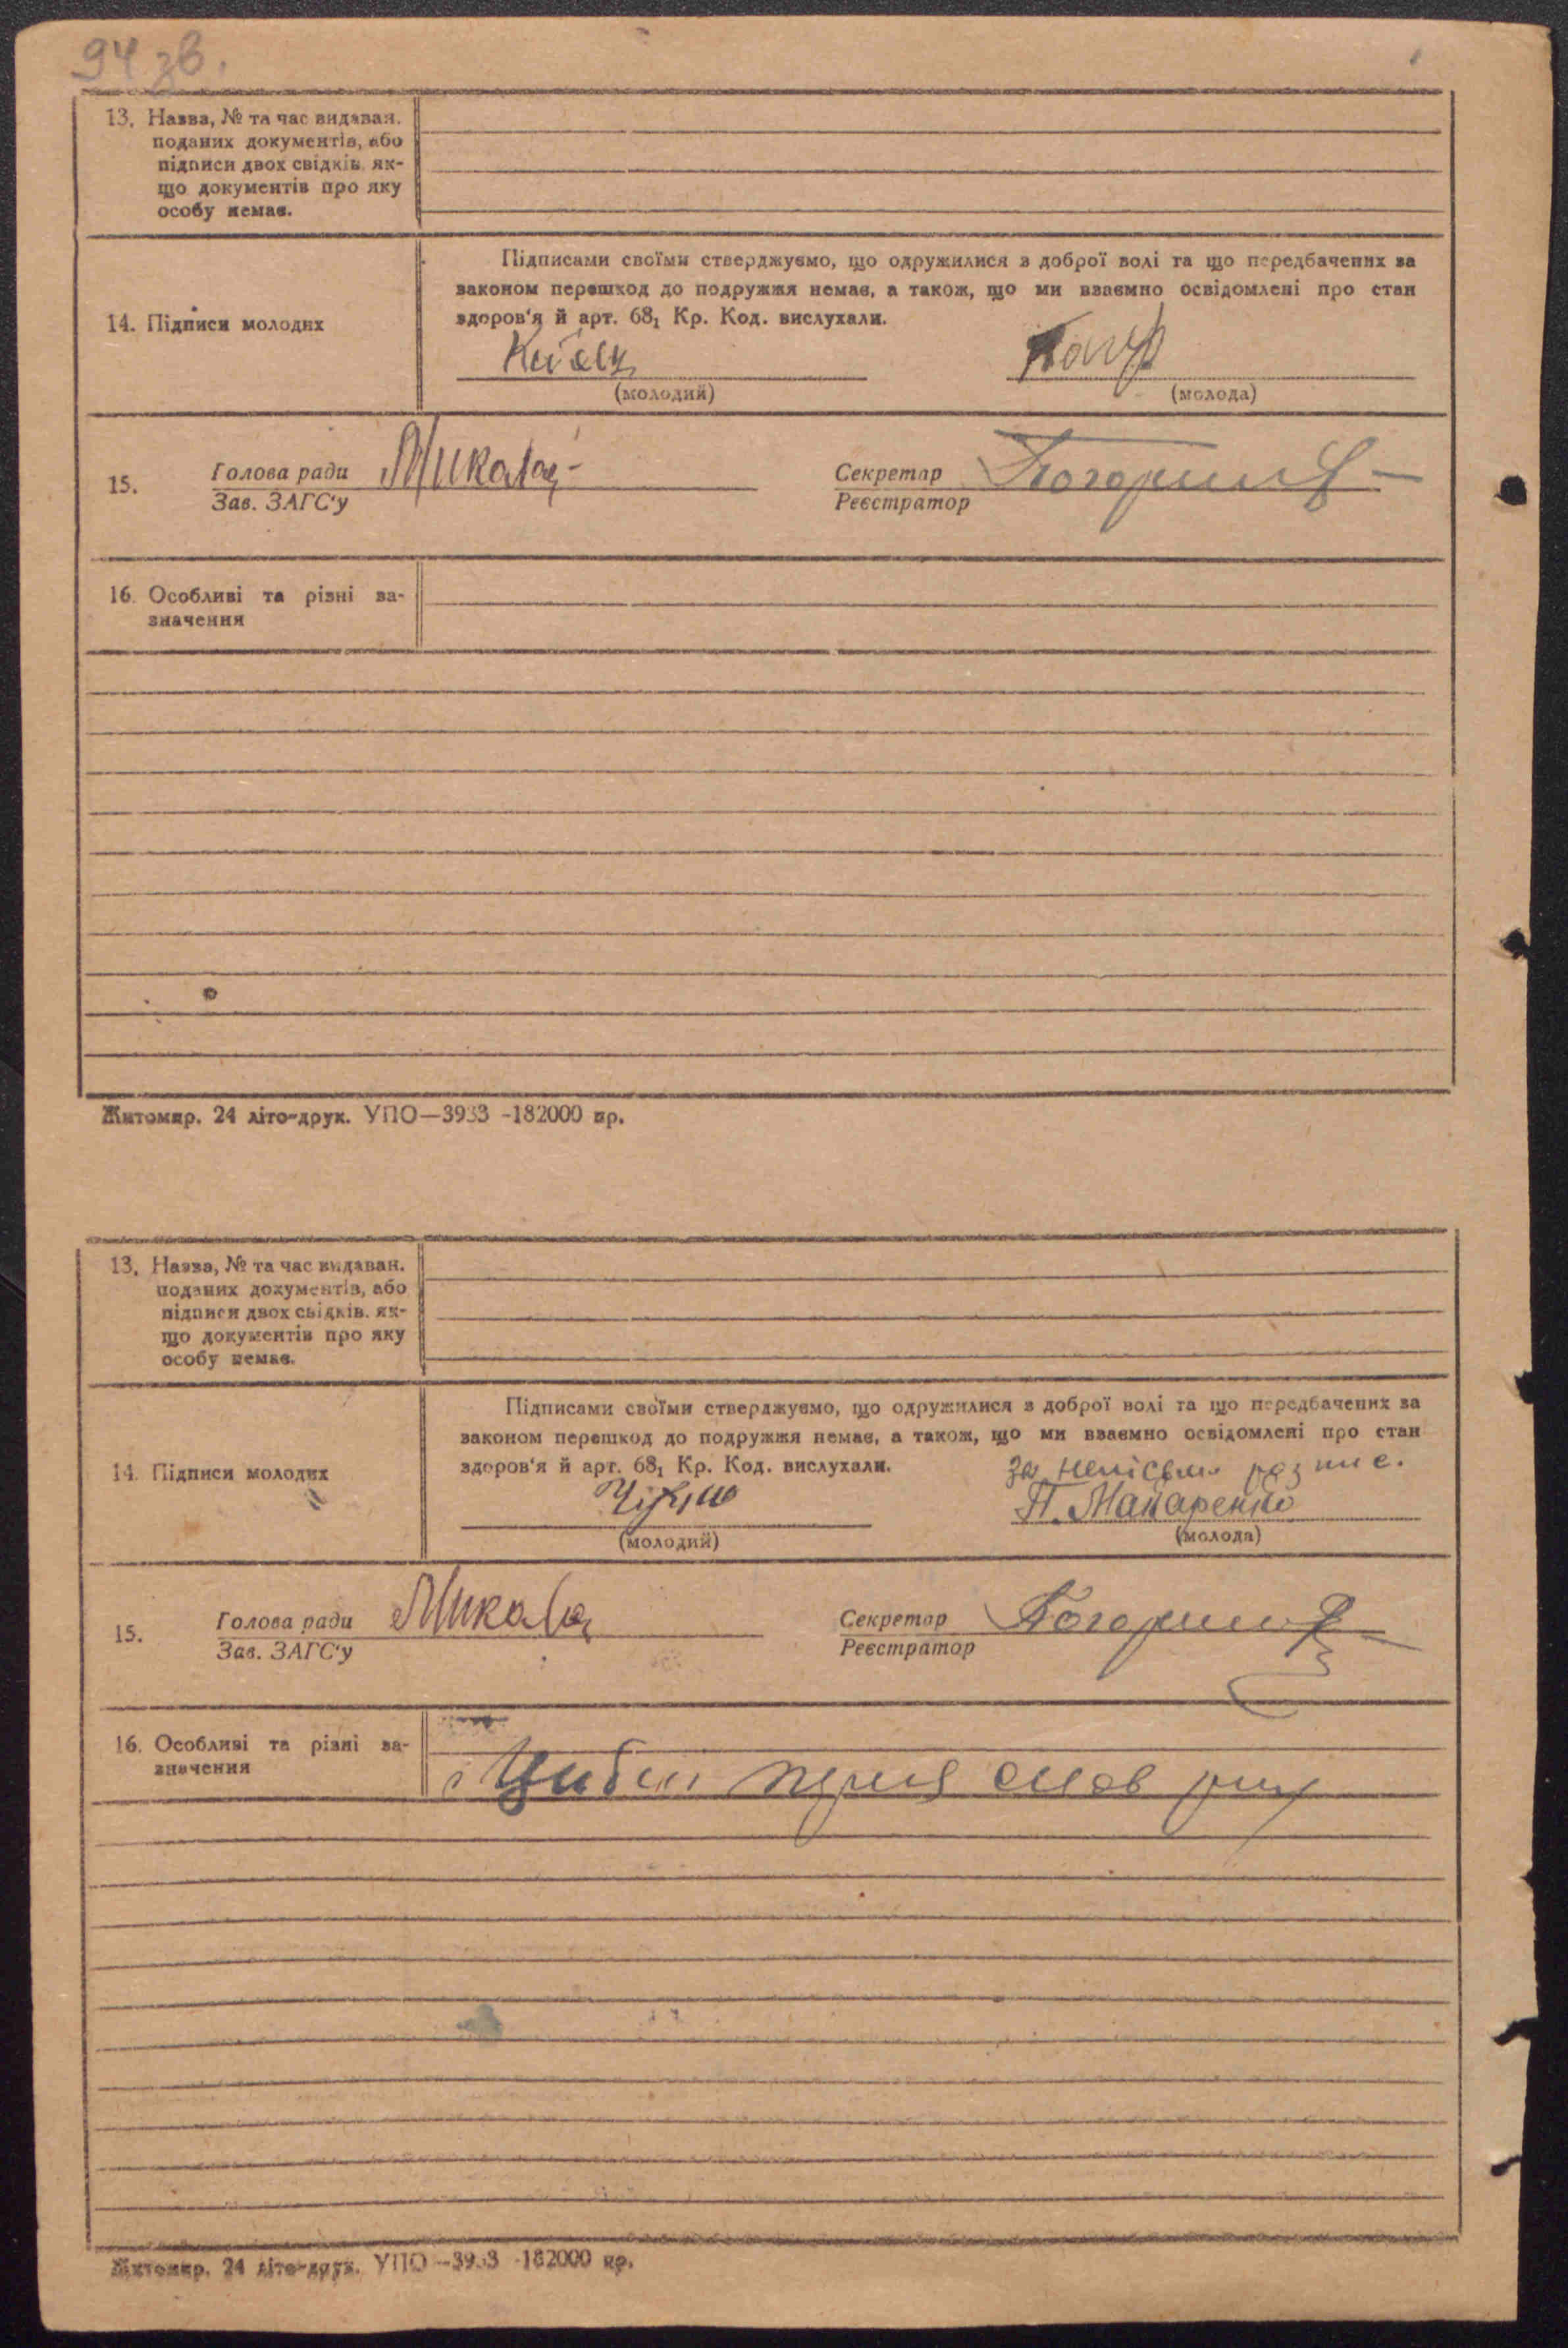 94 зв.
13. Назва, № та час видаван.
поданих документів, або
підписи двох свідків, як-
що документів про яку
особу немає.
14. Підписи молодих
Підписами своїми стверджуємо, що одружилися з доброї волі та що передбачених за
законом перешкод до подружжя немає, а також, що ми взаємно освідомлені про стан
здоров'я й арт. 68₁ Кр. Код. вислухали.
(молодий) (молода)
15. Голова ради Секретар
Зав. ЗАГС'у Реєстратор
16. Особливі та різні за-
значення
Житомир. 24 літо-друк. УПО—3933 -182000 пр.
13. Назва, № та час видаван.
поданих документів, або
підписи двох свідків, як-
що документів про яку
особу немає.
14. Підписи молодих
Підписами своїми стверджуємо, що одружилися з доброї волі та що передбачених за
законом перешкод до подружжя немає, а також, що ми взаємно освідомлені про стан
здоров'я й арт. 68₁ Кр. Код. вислухали.
П. Макаренко
(молодий) (молода)
15. Голова ради Секретар
Зав. ЗАГС'у Реєстратор
16. Особливі та різні за-
значення
Житомир. 24 літо-друк. УПО—3933 -182000 пр.